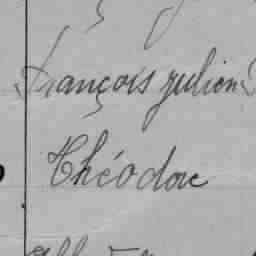 François julien
Théodore